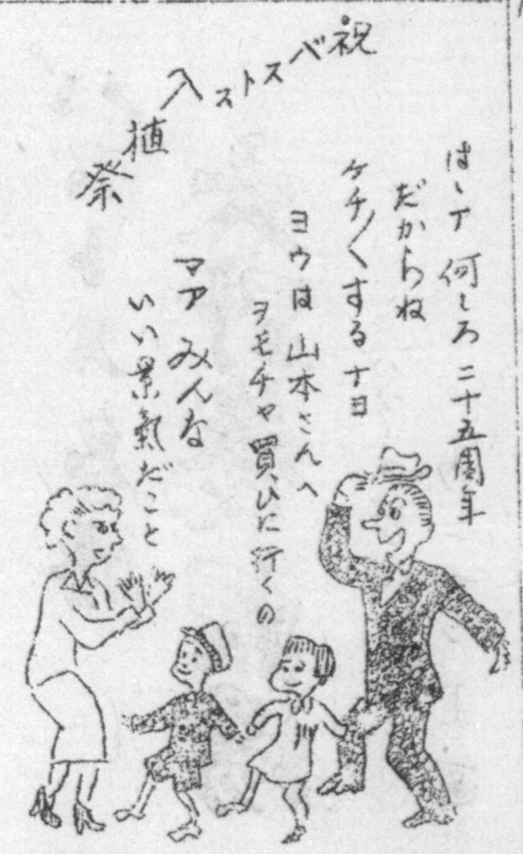 祝バストス入
植
祭
はゝア 何しろ 二十五周年
だからね
ケチ〳〵するナヨ
ヨウは 山本さんへ
ヲモチャ 買ひに行くの
マア みんな
いい景氣だこと